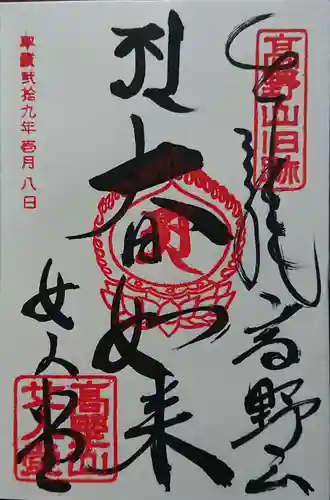 高野山旧跡
高野山
大日如来
平成弐拾九年壱月八日
女人堂
高野山
女人堂